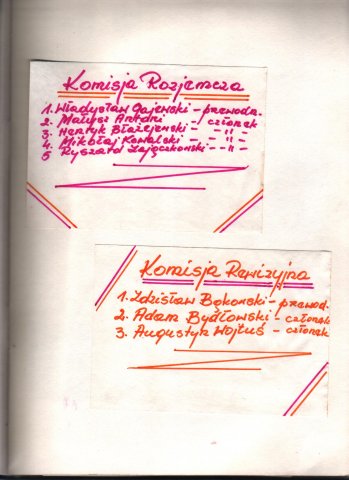 Komisja Rozjemcza
1. Władysław Gajewski - przewodn.
2. Mateusz Antoni - członek
3. Henryk Błażejewski - - " -
4. Mikołaj Kowalski - - " -
5 Ryszard Zajączkowski - - " -
Komisja Rewizyjna
1. Zdzisław Bąkowski - przewod.
2. Adam Bydłowski - członek
3. Augustyn Wojtuś - członek